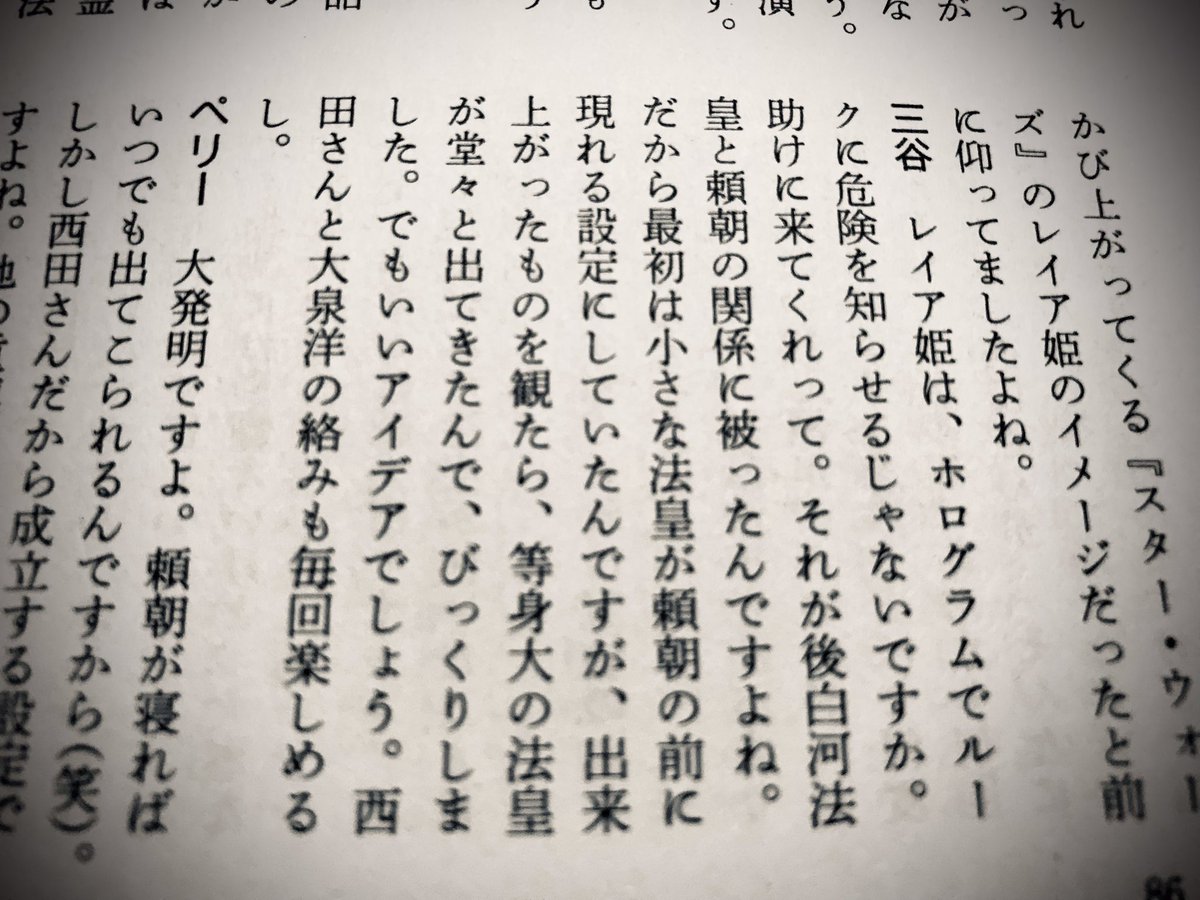 れ
っ
が
な
う。
演
す。
も
う
語
の
が
は
霊
法
かび上がってくる『スター・ウォー
ズ』のレイア姫のイメージだったと前
に仰ってましたよね。
三谷 レイア姫は、ホログラムでルー
クに危険を知らせるじゃないですか。
助けに来てくれって。それが後白河法
皇と頼朝の関係に被ったんですよね。
だから最初は小さな法皇が頼朝の前に
現れる設定にしていたんですが、出来
上がったものを観たら、等身大の法皇
が堂々と出てきたんで、びっくりしま
した。でもいいアイデアでしょう。西
田さんと大泉洋の絡みも毎回楽しめる
し。
ペリー 大発明ですよ。頼朝が寝れば
いつでも出てこられるんですから(笑)。
しかし西田さんだから成立する設定で
すよね。他の
86